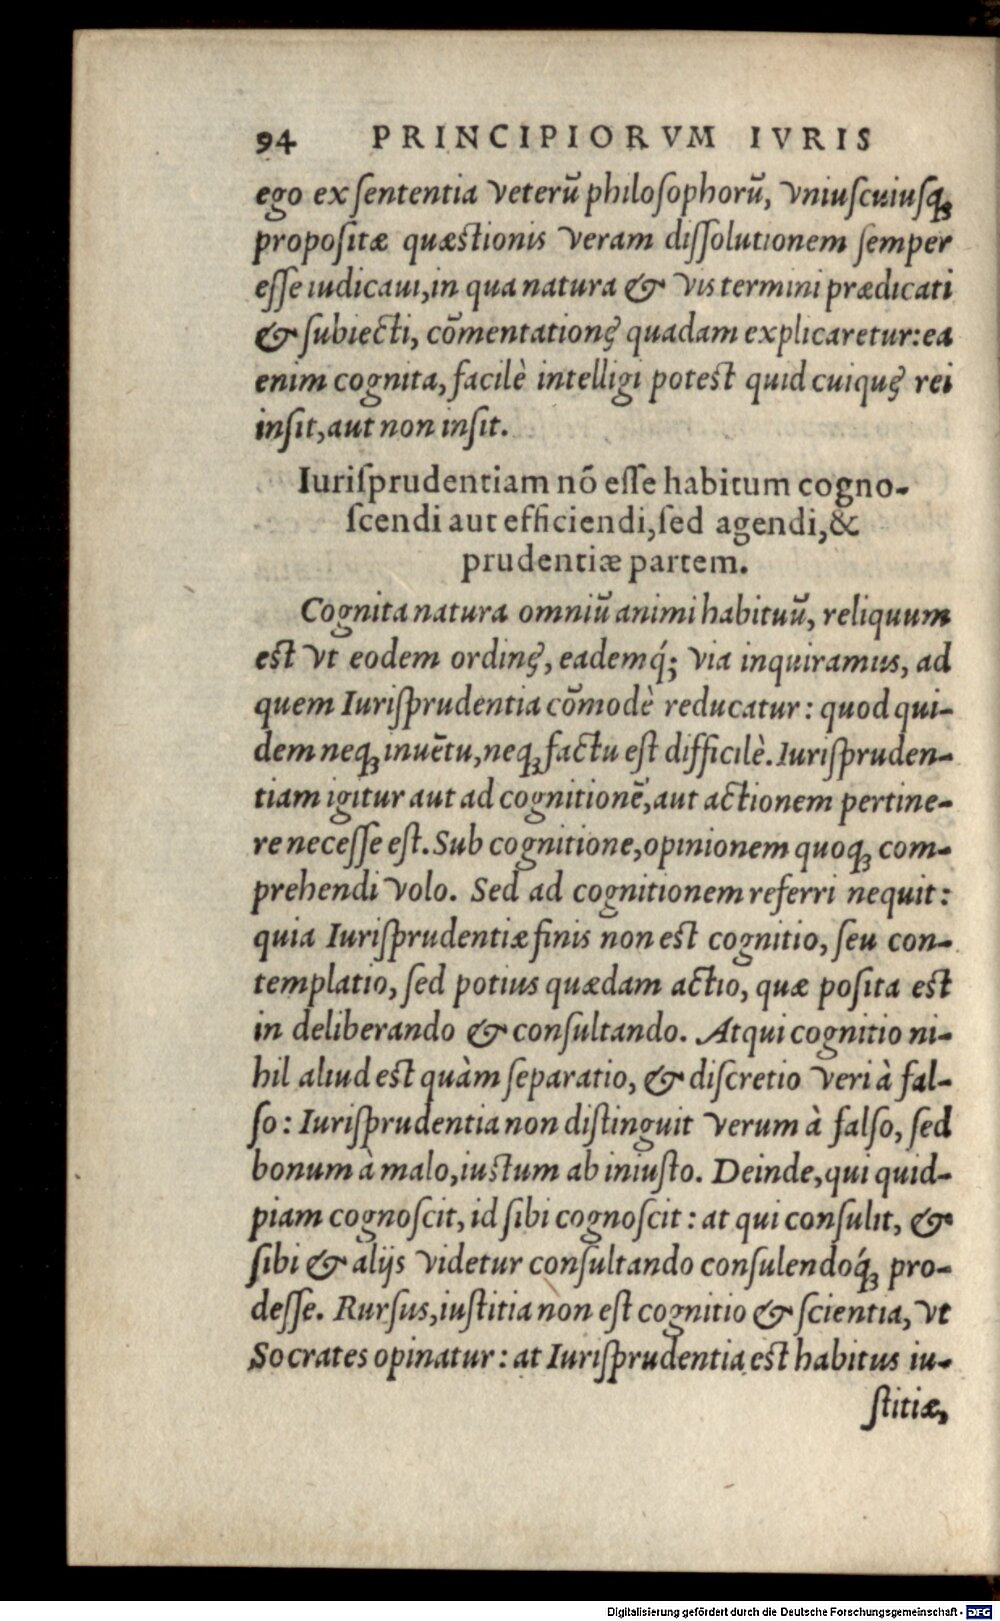 94 PRINCIPIORVM IVRIS
ego ex ſententia veterū philoſophorū, vniuſcuiuſq́;
propoſitæ quæſtionis veram diſſolutionem ſemper
eſſe iudicaui, in qua natura & vis termini prædicati
& ſubiecti, cōmentationę quadam explicaretur: ea
enim cognita, facilè intelligi poteſt quid cuiquę rei
inſit, aut non inſit.
Iuriſprudentiam nō eſſe habitum cogno-
ſcendi aut efficiendi, ſed agendi, &
prudentiæ partem.
Cognita natura omniū animi habituū, reliquum
eſt vt eodem ordinę, eademq́; via inquiramus, ad
quem Iuriſprudentia cōmodè reducatur: quod qui-
dem neq; inuētu, neq; factu eſt difficilè. Iuriſpruden-
tiam igitur aut ad cognitionē, aut actionem pertine-
re neceſſe eſt. Sub cognitione, opinionem quoq; com-
prehendi volo. Sed ad cognitionem referri nequit:
quia Iuriſprudentiæ finis non eſt cognitio, ſeu con-
templatio, ſed potius quædam actio, quæ poſita eſt
in deliberando & conſultando. Atqui cognitio ni-
hil aliud eſt quàm ſeparatio, & diſcretio veri à fal-
ſo: Iuriſprudentia non diſtinguit verum à falſo, ſed
bonum à malo, iuſtum ab iniuſto. Deinde, qui quid-
piam cognoſcit, id ſibi cognoſcit: at qui conſulit, &
ſibi & alijs videtur conſultando conſulendoq́; pro-
deſſe. Rurſus, iuſtitia non eſt cognitio & ſcientia, vt
Socrates opinatur: at Iuriſprudentia eſt habitus iu-
ſtitiæ,
Digitalisierung gefördert durch die Deutsche Forschungsgemeinschaft - DFG